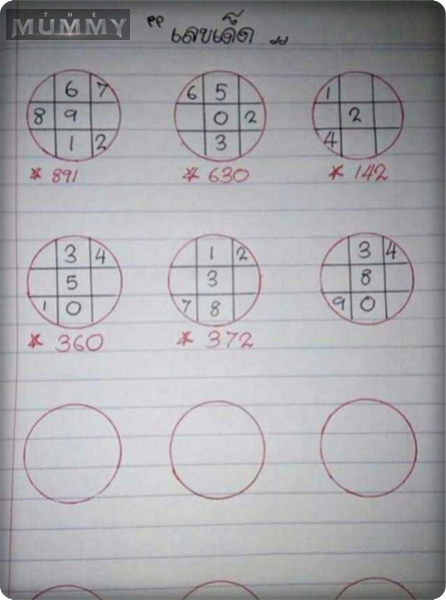 THE
MUMMY
" เลขเด็ด "
6 7 6 5 1
8 9 0 2 2
1 2 3 4
* 891 * 630 * 142
3 4 1 2 3 4
5 3 8
1 0 7 8 9 0
* 360 * 372